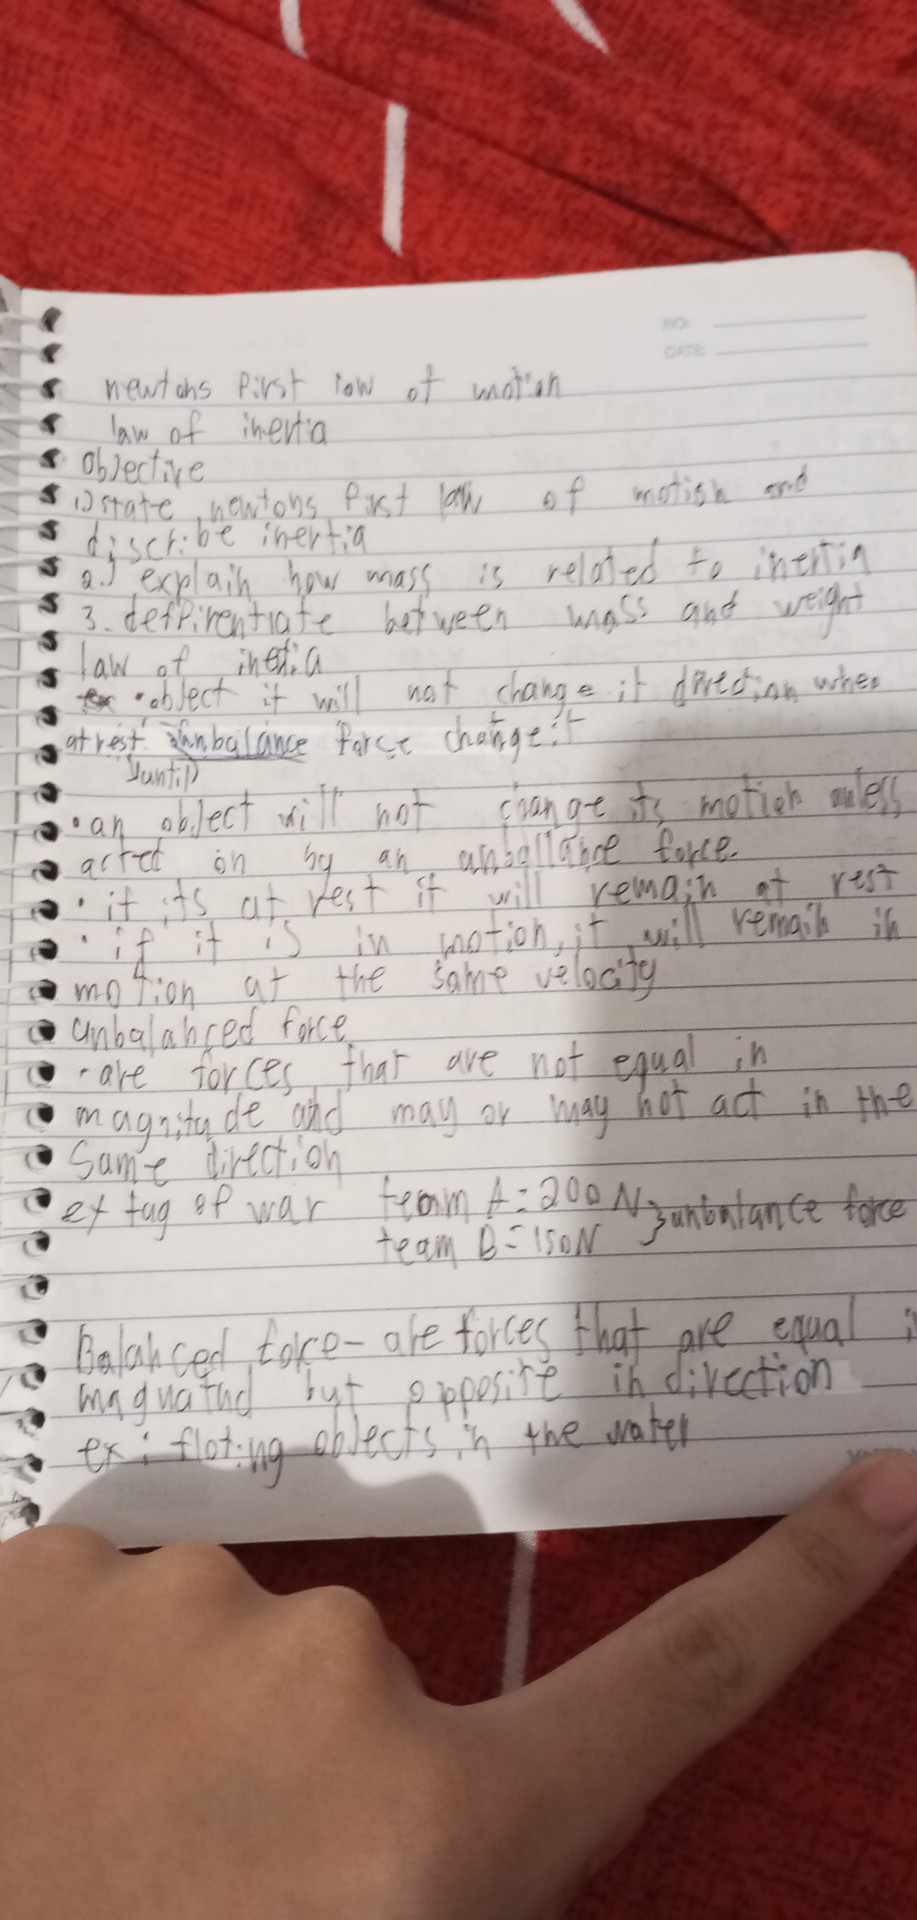 NO:
DATE:
newtons first low of motion
law of inertia
objective
1) state newtons first law of motion and
discribe inertia
2.) explain how mass is related to inertia
3. deffirentiate between mass and weight
law of inertia
• object it will not change it direction when
at rest unbalance force change it
(until)
• an object will not change its motion unless
acted on by an unballance force.
• if its at rest it will remain at rest
• if it is in motion, it will remain in
motion at the same velocity
unbalanced force
• are forces that are not equal in
magnitude and may or may not act in the
same direction
ex tug of war team A = 200 N } unbalance force
team B = 150N
Balanced force - are forces that are equal i
magnatud but opposite in direction
ex: floting objects in the water